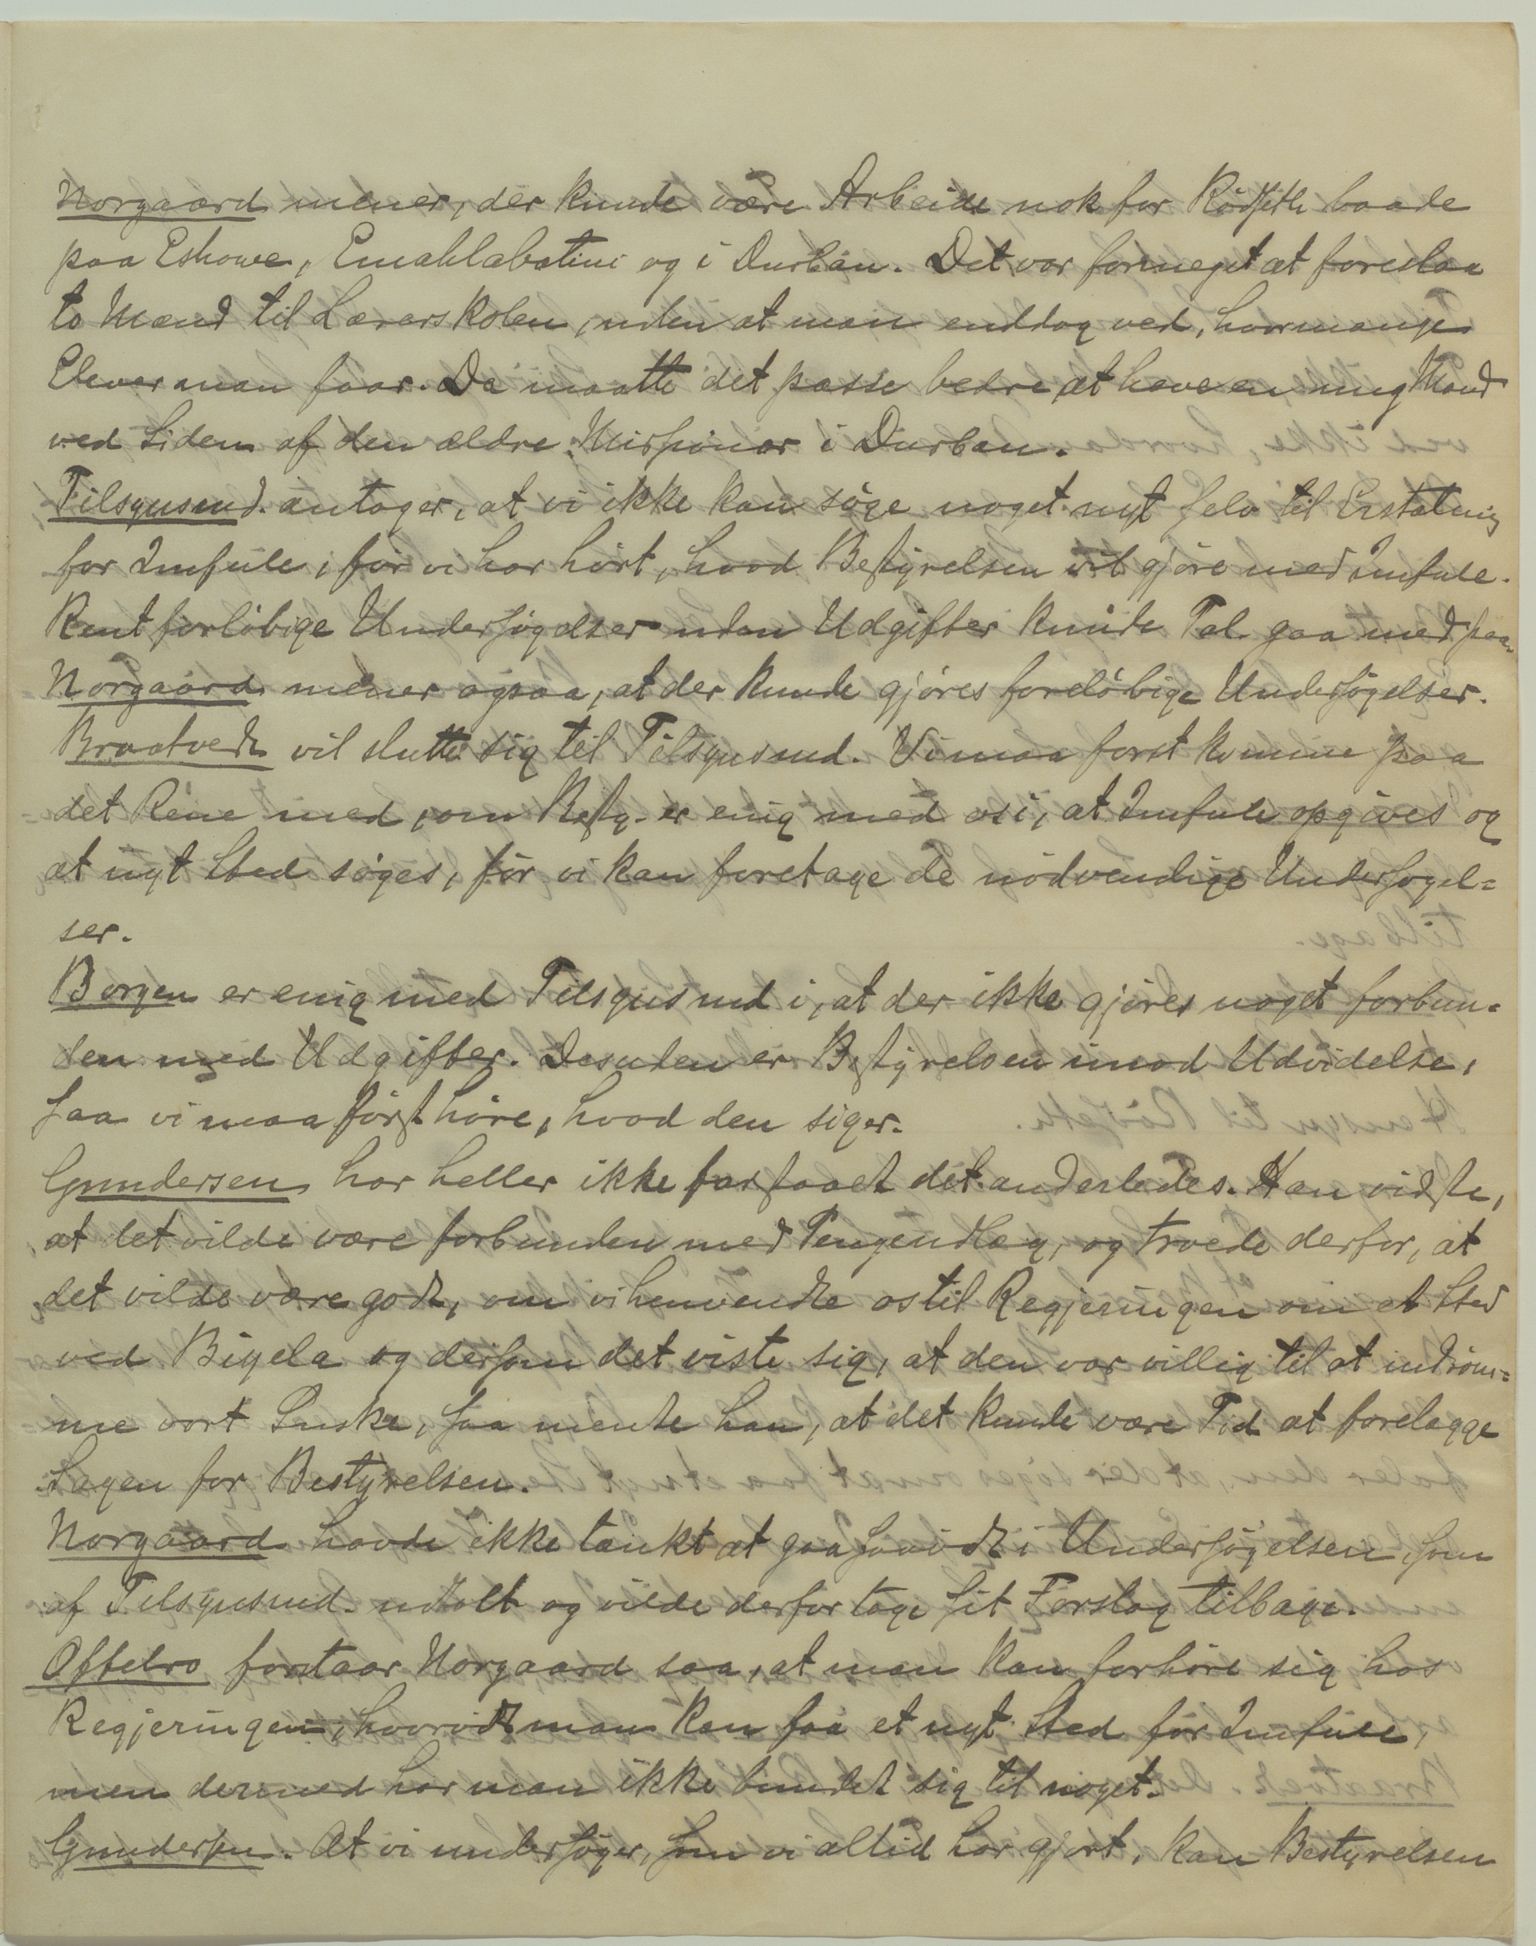 Norgaard mener, der kunde være Arbeide nok for Rödseth baade
paa Eshowe, Emahlabatini og i Durban. Det var formeget at foreslaa
to Mænd til Lærerskolen, uden at man enddog ved, hvormange
Elever man faar. Da maatte det passe bedre, at have en ung Mand
ved Siden af den ældre Missionær i Durban.
Tilsynsmd. antager, at vi ikke kan söge noget nyt felt til Erstatning
for Imfule, för vi har hört, hvad Bestyrelsen vil gjöre med Imfule.
Rent forlöbige Undersögelser uden Udgifter kunde Tal. gaa med paa.
Norgaard mener ogsaa, at der kunde gjöres foreløbige Undersögelser.
Braatvedt vil slutte sig til Tilsynsmd. Vi maa först komme paa
det Rene med, om Besty. er enig med os i, at Imfule opgives og
at nyt Sted söges, för vi kan foretage de nödvendige Undersögel=
ser.
Borgen er enig med Tilsynsmd i, at der ikke gjöres noget forbun=
den med Udgifter. Desuden er Bestyrelsen imod Udvidelse,
saa vi maa först höre, hvad den siger.
Gundersen har heller ikke forstaaet det anderledes. Han vidste,
at det vilde være forbunden med Pengeudlæg, og troede derfor, at
det vilde være godt, om vi henvendte os til Regjeringen om et Sted
ved Bigela og dersom det viste sig, at den var villig til at indröm=
me vort Önske, saa mente han, at det kunde være Tid at forelægge
Sagen for Bestyrelsen.
Norgaard havde ikke tænkt at gaa saavidt i Undersögelsen, som
af Tilsynsmd. udtalt og vilde derfor tage sit Forslag tilbage.
Oftebro forstaar Norgaard saa, at man kan forhöre sig hos
Regjeringen, hvorvidt man kan faa et nyt Sted for Imfule,
men dermed har man ikke bundet sig til noget.
Gundersen. At vi undersöger, som vi altid har gjort, kan Bestyrelsen